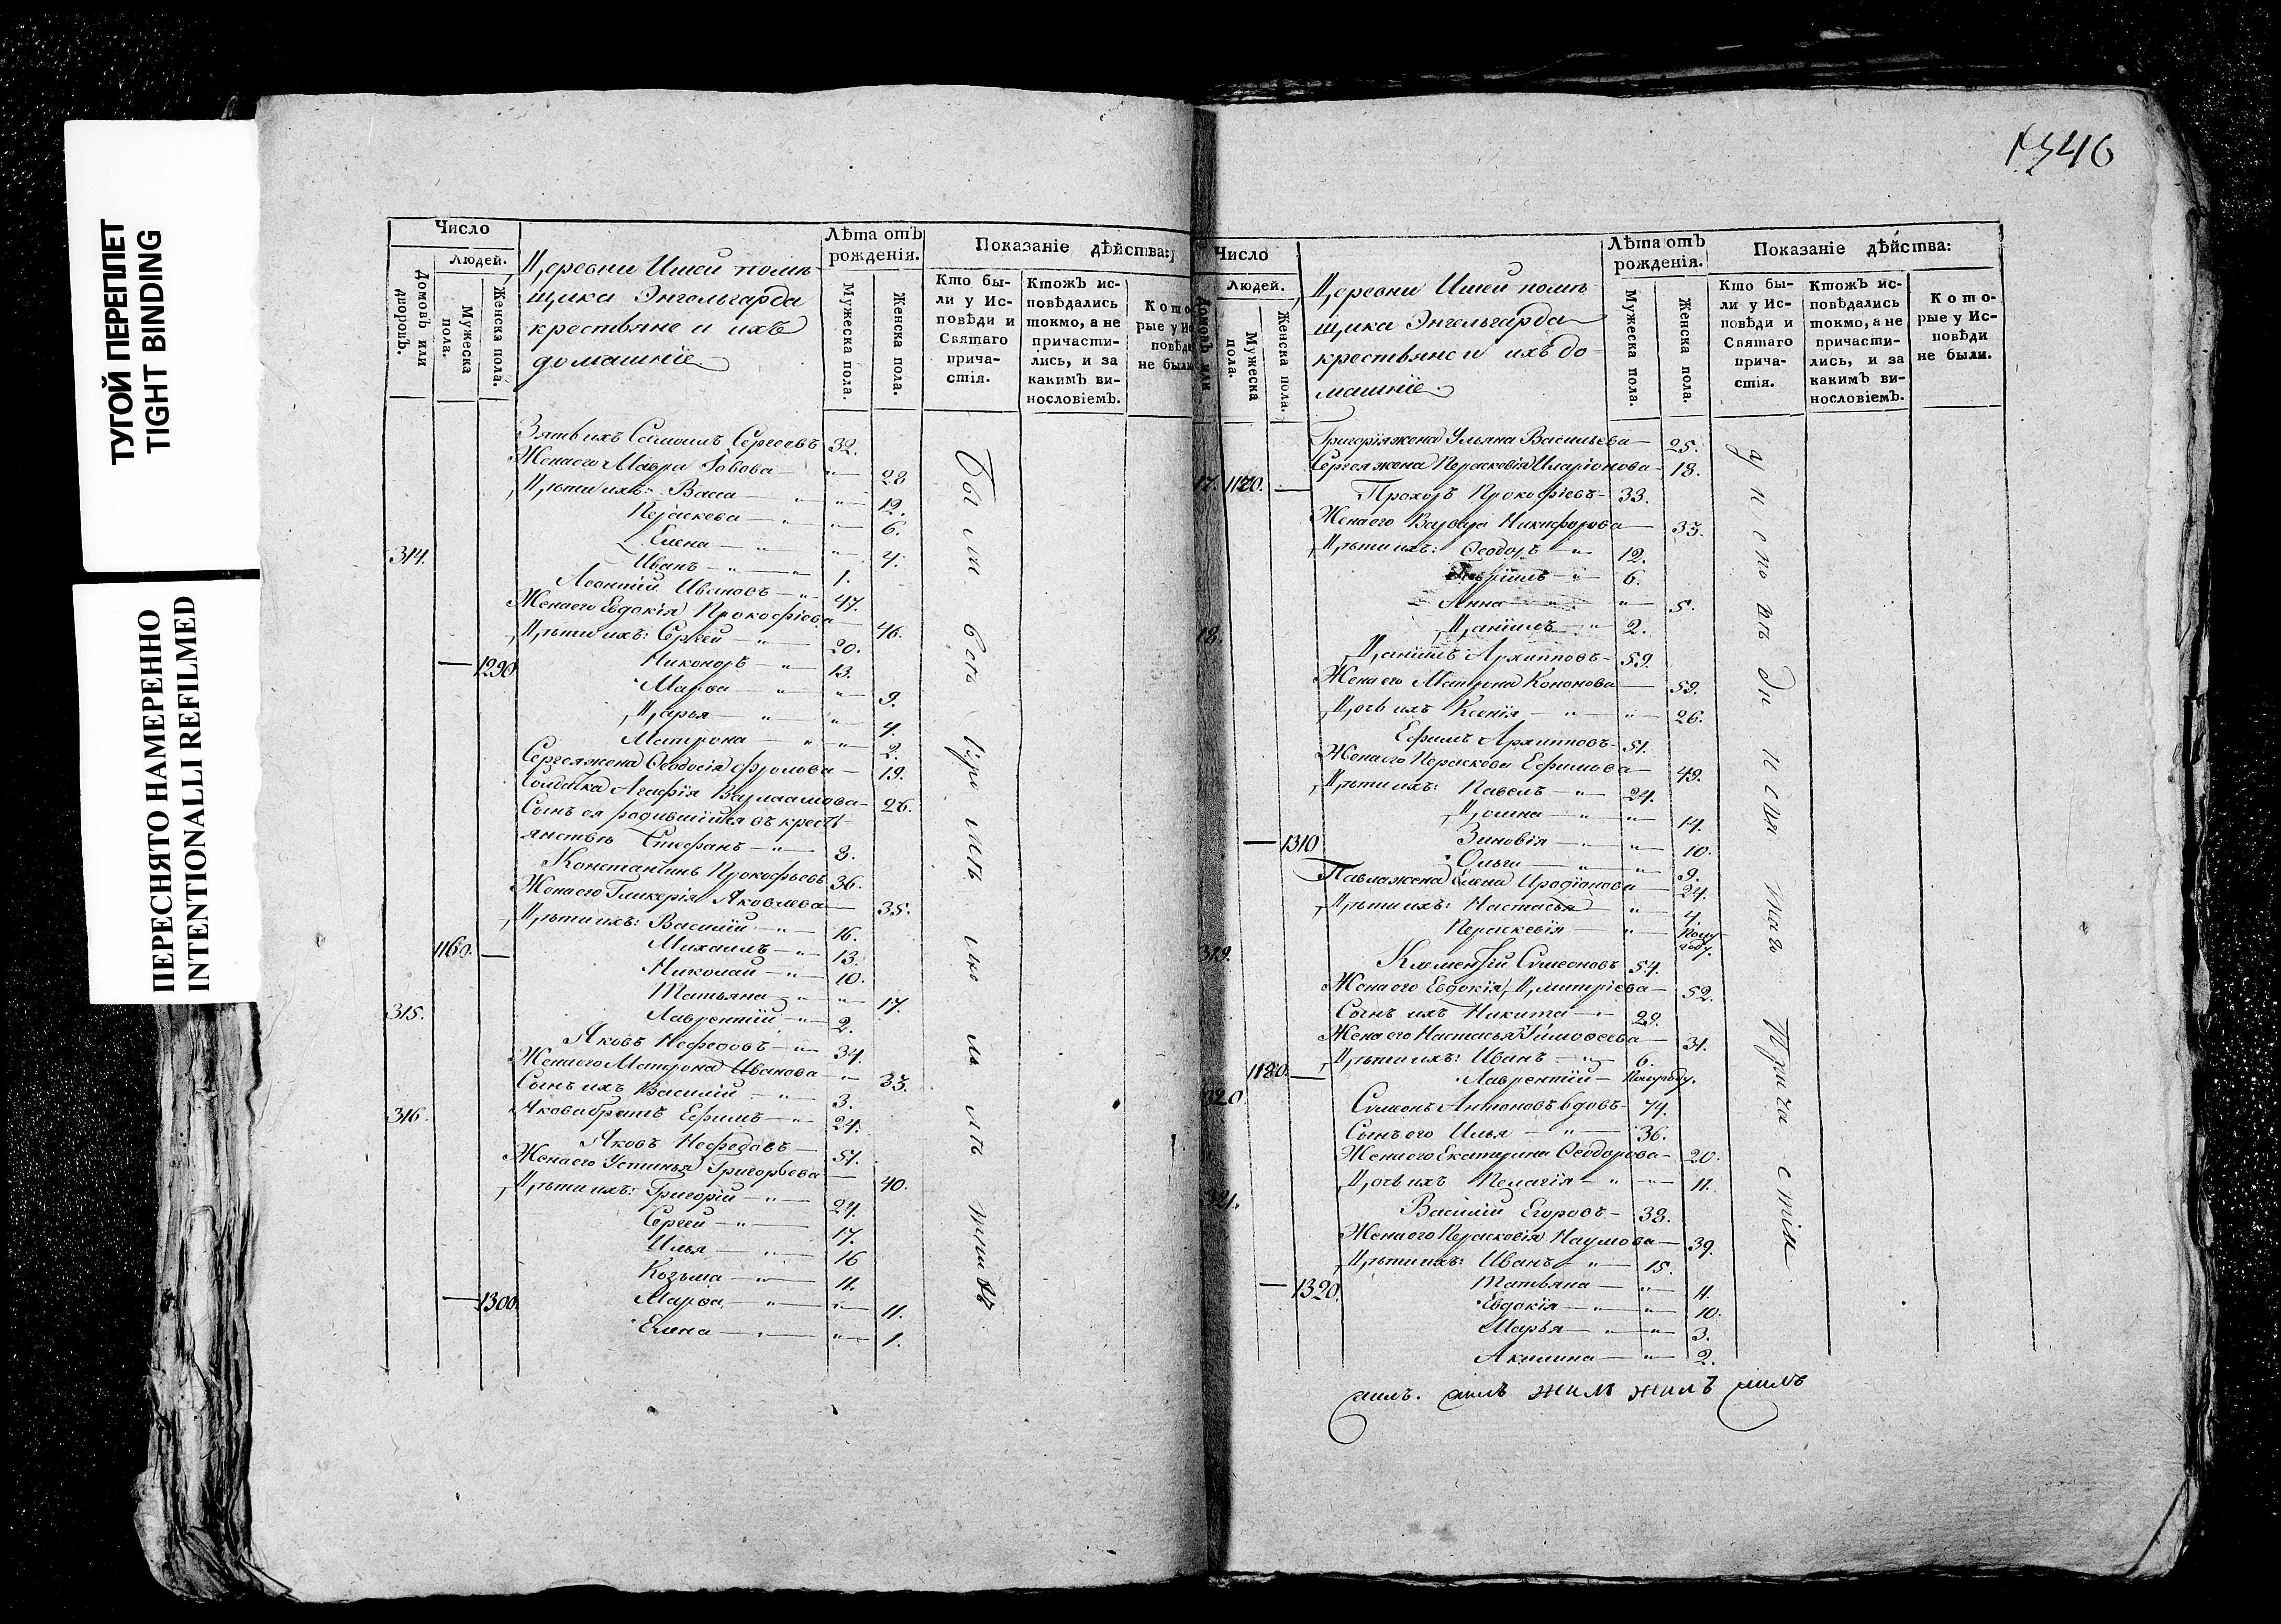 ТУГОЙ ПЕРЕПЛЕТ
TIGHT BINDING
ПЕРЕСНЯТО НАМЕРЕННО
INTENTIONALLI REFILMED
Число
Людей.
Домовъ или дворовъ.
Мужеска пола.
Женска пола.
Деревни Ишеи помѣ-
щика Энгельгарда
крестьяне и ихъ
домашніе
Лѣта отъ рожденія.
Мужеска пола.
Женска пола.
Показаніе дѣйства:
Кто бы-
ли у Ис-
повѣди и
Святаго
прича-
стія.
Ктожъ ис-
повѣдались
токмо, а не
причасти-
лись, и за
какимъ ви-
нословіемъ.
Кото
рые у Ис
повѣди
не были
Зять ихъ Самоилъ Сергеевъ 32.
Жена его Мавра Іовова 28
Дѣти ихъ: Васса 12.
Параскева 6.
Елена 4.
314. Иванъ 1.
Леонтій Ивановъ 47.
Жена его Евдокія Прокофіева 46.
Дѣти ихъ: Сергей 20.
1290 Никоноръ 13.
Марѳа 9.
Дарья 4.
Матрона 2.
Сергея жена Ѳеодосія Фролова 19.
Солдатка Агафія Варлаамова 26.
Сынъ ея родившійся въ кресть
янствѣ Стефанъ 8.
Константинъ Прокофьевъ 36.
Жена его Гликерія Яковлева 35.
Дѣти ихъ: Василій 16.
1160. Михаилъ 13.
Николай 10.
Татьяна 17.
315. Лаврентій 2.
Яковъ Нефедовъ 34.
Жена его Матрона Иванова 33.
Сынъ ихъ Василій 3.
316. Якова братъ Ефимъ 24.
Яковъ Нефедовъ 51.
Жена его Устинья Григорьева 40.
Дѣти ихъ: Григорій 24.
Сергей 17.
Илья 16
Козьма 11.
1300. Марѳа 11.
Елена 1.
1346
Число
Людей.
Домовъ или
Мужеска пола.
Женска пола.
Деревни Ишеи помѣ-
щика Энгельгарда
крестьяне и ихъ до-
машніе
Лѣта отъ рожденія.
Мужеска пола.
Женска пола.
Показаніе дѣйства:
Кто бы-
ли у Ис-
повѣди и
Святаго
прича-
стія.
Ктожъ ис-
повѣдались
токмо, а не
причасти-
лись, и за
какимъ ви-
нословіемъ.
Кото-
рые у Ис-
повѣди
не были.
Григорія жена Ульяна Васильева 25.
Сергея жена Параскевія Иларіонова 18.
17. 1170. Прохоръ Прокофіевъ 33.
Жена его Варвара Никифорова 33.
Дѣти ихъ: Ѳеодоръ 12.
6.
Анна 5.
18. Даніилъ 2.
Даніилъ Архиповъ 59.
Жена его Матрона Кононова 59.
Дочь ихъ Ксенія 26.
Ефимъ Архиповъ 51.
Жена его Параскева Ефимова 49.
Дѣти ихъ: Павелъ 24.
Домна 14.
1310 Зиновія 10.
Ольга 9.
Павла жена Елена Иродіонова 24.
Дѣти ихъ: Настасья 4.
Параскевія полу году.
319. Климентій Симеоновъ 54.
Жена его Евдокія Дмитріева 52.
Сынъ ихъ Никита 29.
Жена его Настасья Тимоѳеева 31.
Дѣти ихъ: Иванъ 6.
1180. Лаврентій полугоду.
320 Симеонъ Антоновъ вдовъ 74.
Сынъ его Илья 36.
Жена его Екатерина Ѳеодорова 20.
Дочь ихъ Пелагія 11.
321. Василій Егоровъ 38.
Жена его Параскевія Наумова 39.
Дѣти ихъ: Иванъ 15.
1320. Татьяна 11.
Евдокія 10.
Марья 3.
Акилина 2.